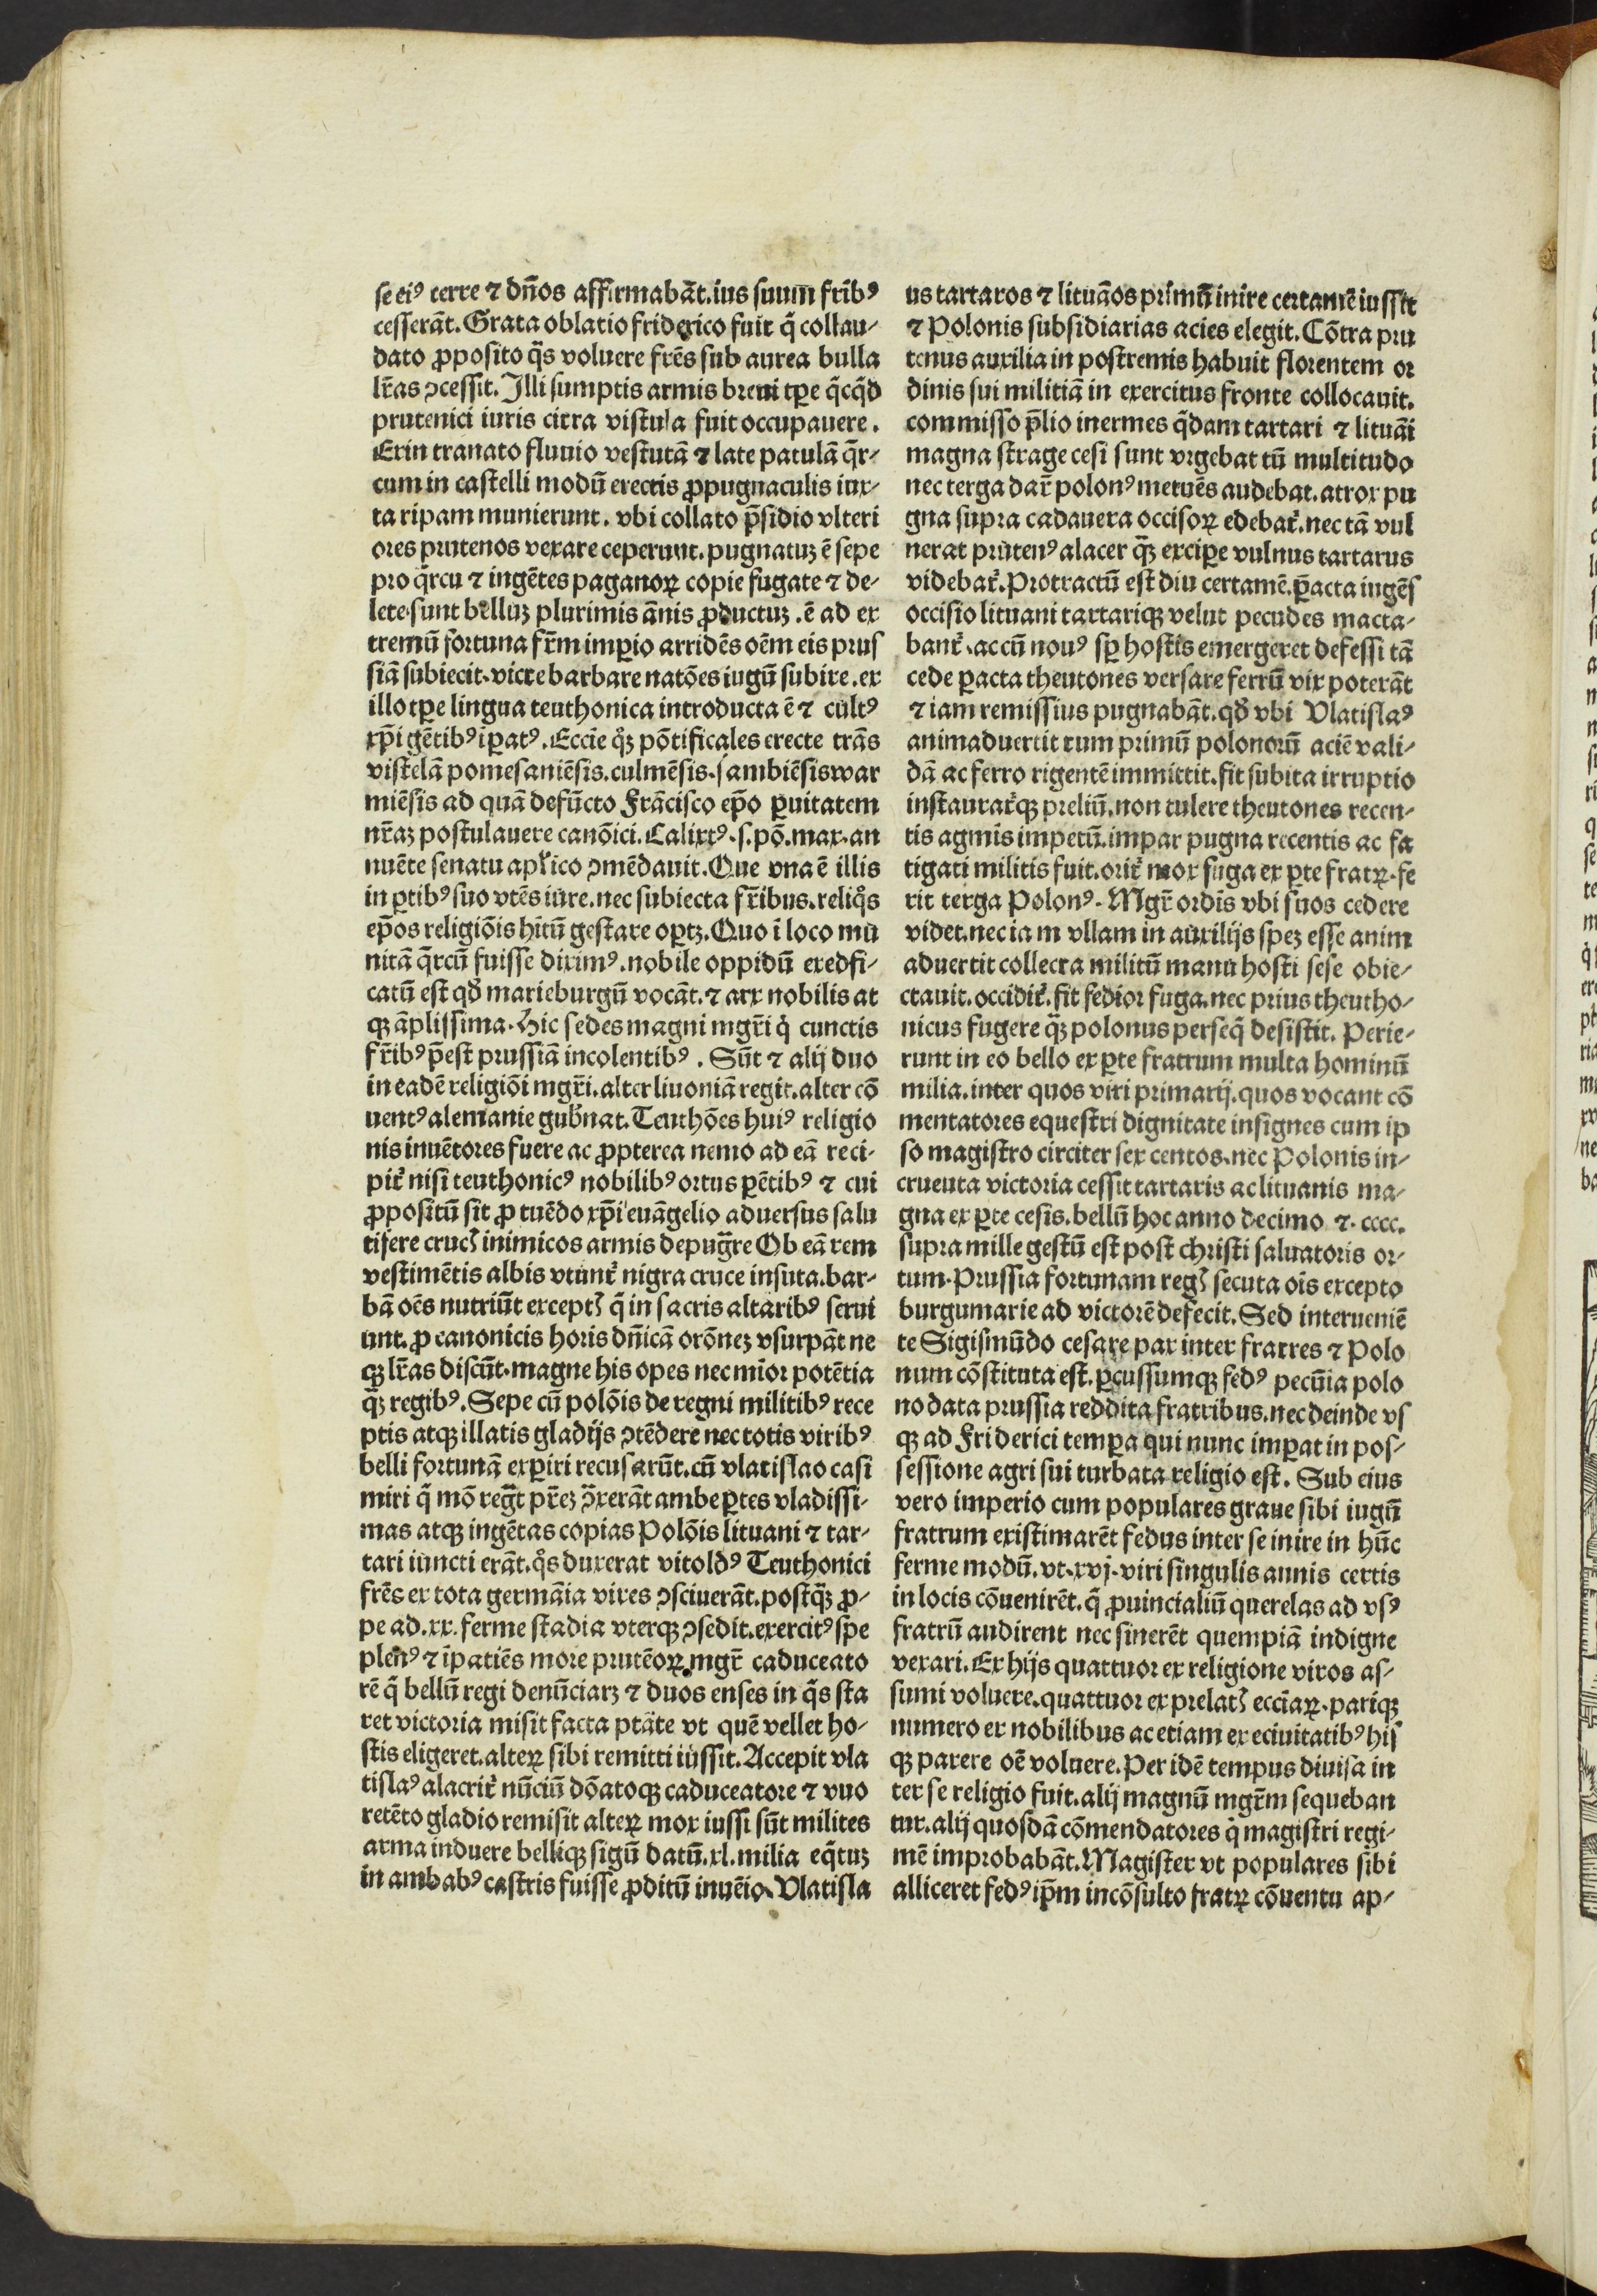 se eiꝰ terre ⁊ dños affirmabāt.ius suum̄ frībꝰ
cesserāt. Grata oblatio friderico fuit q̄ collau-
dato ꝓposito q̊s voluere frēs sub aurea bulla
lr̄as ↄcessit. Illi sumptis armis breui tꝑe q̇cq̇d
prutenici iuris citra vistula fuit occupauere.
Exin tranato fluuio vestutā ⁊ late patulā q̄r-
cum in castelli modū erectis ꝓpugnaculis iux-
ta ripam munierunt. vbi collato p̄sidio vlteri
ores prutenos vexare ceperunt. pugnatuꝫ ē sepe
pro q̄rcu ⁊ ingētes paganoꝝ copie fugate ⁊ de-
lete sunt belluꝫ plurimis ānis ꝓductuꝫ .ē ad ex
tremū fortuna fr̄m imꝑio arridēs oēm eis prus
siā subiecit.victe barbare natōes iugū subire.ex
illo tꝑe lingua teuthonica introducta ē ⁊ cultꝰ
xp̄i gētibꝰ iꝑatꝰ. Eccīe q̊ꝫ pōtificales erecte trās
vistelā pomesaniēsis.culmēsis.sambiēsis war
miēsis ad quā defūcto Frācisco ep̄o ꝑuitatem
nr̄aꝫ postulauere canōici. Calixtꝰ.s.pō.max.an
nuēte senatu apl̄ico ↄmēdauit. Que vna ē illis
in ꝑtibꝰ suo vtēs iure.nec subiecta fr̄ibus.reliq̊s
ep̄os religiōis hītū gestare oꝑtꝫ. Quo ī loco mu
nitā q̄rcū fuisse diximꝰ.nobile oppidū exedfi-
catū est qd̄ marieburgū vocāt. ⁊ arx nobilis at
qꝫ āplissima. Hic sedes magni mgr̄i q̇ cunctis
fr̄ibꝰ p̄est prussiā incolentibꝰ. Sūt ⁊ alij duo
in eadē religiōi mgr̄i.alter liuoniā regit.alter cō
uentꝰ alemanie gub̄nat. Teuthōes huiꝰ religio
nis inuētores fuere ac ꝓpterea nemo ad eā reci-
pit̄ nisi teuthonicꝰ nobilibꝰ ortus ꝑētibꝰ ⁊ cui
ꝓpositū sit ꝓ tuēdo xp̄i euāgelio aduersus salu
tifere crucꝭ inimicos armis depug̃re Ob eā rem
vestimētis albis vtunt̄ nigra cruce insuta.bar-
bā oēs nutriūt exceptꝭ q̇ in sacris altaribꝰ serui
unt.ꝓ canonicis horis dn̄icā orōneꝫ vsurpāt ne
qꝫ lr̄as discūt.magne his opes nec mīor potētia
q̄ꝫ regibꝰ. Sepe cū polōis de regni militibꝰ rece
ptis atqꝫ illatis gladijs ↄtēdere nec totis viribꝰ
belli fortunā exꝑiri recusarūt.cū vlatislao casi
miri q̇ mō reg̃t pr̄eꝫ ↄ̃xerāt ambe ꝑtes vladissi-
mas atqꝫ ingētas copias Polōis lituani ⁊ tar-
tari iuncti erāt.q̊s duxerat vitoldꝰ Teuthonici
frēs ex tota germāia vires ↄsciuerāt.postq̄ꝫ ꝓ-
pe ad.xx.ferme stadia vterqꝫ ↄsedit.exercitꝰ spe
plenꝰ ⁊ īpatiēs more prutēoꝝ.mgr̄ caduceato
rē q̇ bellū regi denūciarꝫ ⁊ duos enses in q̊s sta
ret victoria misit facta ptāte vt quē vellet ho-
stis eligeret.alteꝝ sibi remitti iussit. Accepit vla
tislaꝰ alacrit̄ nūciū dōatoqꝫ caduceatore ⁊ vno
retēto gladio remisit alteꝝ mox iussi sūt milites
arma induere belliqꝫ sigū datū.xl.milia eq̄tuꝫ
in ambabꝰ castris fuisse ꝓditū inuēio. Vlatisla
us tartaros ⁊ lituāos primū inire certamē iussit
⁊ Polonis subsidiarias acies elegit. Cōtra pru
tenus auxilia in postremis habuit florentem or
dinis sui militiā in exercitus fronte collocauit.
commisso p̄lio inermes q̇dam tartari ⁊ lituāi
magna strage cesi sunt vrgebat tū multitudo
nec terga dar̄ polonꝰ metuēs audebat. atrox pu
gna supra cadauera occisoꝝ edebat̄.nec tā vul
nerat prutenꝰ alacer q̄ꝫ exciꝑe vulnus tartarus
videbat̄. Protractū est diu certamē.ꝑacta iugēs
occisio lituani tartariqꝫ velut pecudes macta-
bant̄.ac cū nouꝰ sꝑ hostis emergeret defessi tā
cede ꝑacta theutones versare ferrū vix poterāt
⁊ iam remissius pugnabāt.qd̄ vbi Vlatislaꝰ
animaduertit tum primū polonorū aciē vali-
dā ac ferro rigentē immittit.fit subita irruptio
instaurat̄qꝫ preliū.non tulere theutones recen-
tis agmis impetū.impar pugna recentis ac fa
tigati militis fuit.orit̄ mox fuga ex ꝑte fratꝝ.fe
rit terga Polonꝰ. Mgr̄ ordis vbi suos cedere
videt.nec ia m vllam in auxilijs speꝫ esse anim
aduertit collecta militū manu hosti sese obie-
ctauit.occidit̄.fit fedior fuga.nec prius theutho-
nicus fugere q̄ꝫ polonus perseq̇ desistit. Perie-
runt in eo bello ex ꝑte fratrum multa hominū
milia.inter quos viri primarij.quos vocant cō
mentatores equestri dignitate insignes cum ip
so magistro circiter sex centos.nec Polonis in-
cruenta victoria cessit tartaris ac lituanis ma-
gna ex ꝑte cesis.bellū hoc anno decimo ⁊. cccc.
supra mille gestū est post christi saluatoris or-
tum. Prussia fortunam regꝭ secuta oīs excepto
burgumarie ad victorē defecit. Sed interueniē
te Sigismūdo cesare pax inter fratres ⁊ Polo
num cōstituta est.ꝑcussumqꝫ fedꝰ pecūia polo
no data prussia reddita fratribus.nec deinde vs
qꝫ ad Friderici temꝑa qui nunc imꝑat in pos-
sessione agri sui turbata religio est. Sub eius
vero imperio cum populares graue sibi iugū
fratrum existimarēt fedus inter se inire in hūc
ferme modū.vt.xvj.viri singulis annis certis
in locis cōuenirēt.q̇ ꝓuincialiū querelas ad vsꝰ
fratrū audirent nec sinerēt quempiā indigne
vexari. Ex hijs quattuor ex religione viros as-
sumi voluere.quattuor ex prelatꝭ eccīaꝝ.pariqꝫ
numero ex nobilibus ac etiam ex eciuitatibꝰ his
qꝫ parere oē voluere. Per idē tempus diuisa in
ter se religio fuit.alij magnū mgr̄m sequeban
tur.alij quosdā cōmendatores q̇ magistri regi-
mē improbabāt. Magister vt populares sibi
alliceret fedꝰ ip̄m incōsulto fratꝝ cōuentu ap-